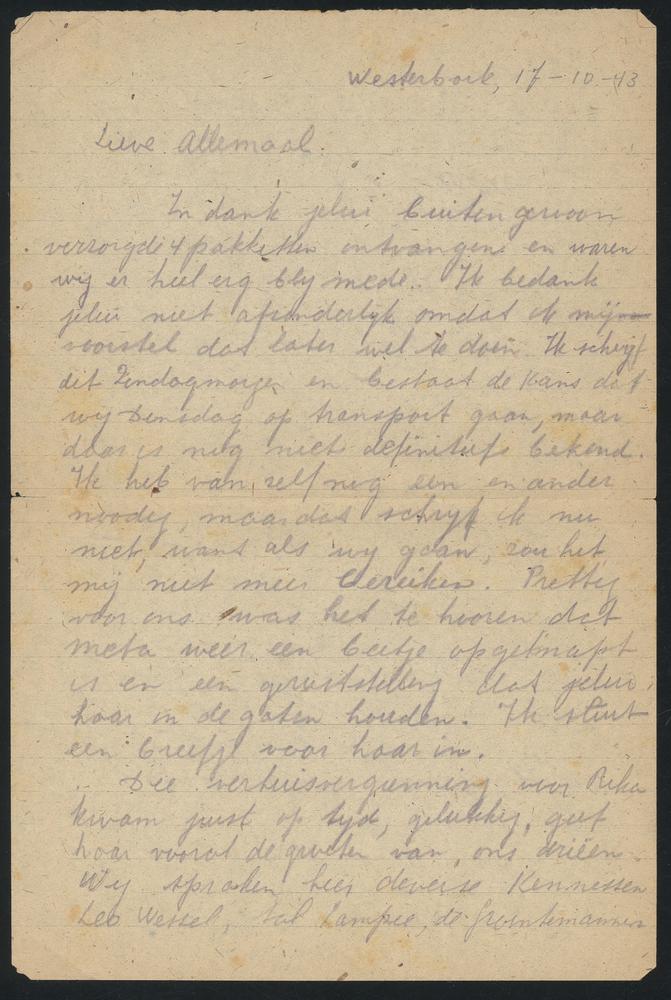 Westerbork, 17-10-43
Lieve Allemaal.
In dank jelui buitengewoon
verzorgde 4 pakketten ontvangen en waren
wij er heel erg blij mede. Ik bedank
jelui niet afzonderlijk omdat ik mij
voorstel dat later wel te doen. Ik schrijf
dit Zondagmorgen en bestaat de Kans dat
wij Densdag op transport gaan, maar
daar is nog niets definitiefs bekend.
Ik heb van zelf nog een en ander
noodig, maar dat schrijf ik nu
niet, want als wij gaan, zou het
mij niet meer bereiken. Prettig
voor ons was het te hooren dat
Meta weer een beetje opgeknapt
is en een geruststelling dat jelui
haar in de gaten houden. Ik sluit
een briefje voor haar in.
Die verhuisvergunning voor Rika
kwam juist op tijd, gelukkig, geef
haar vooral de groeten van ons drieën.
Wij spraken hier deverse Kennessen
Leo Wessel, Sal Lampie, de Groentemannen